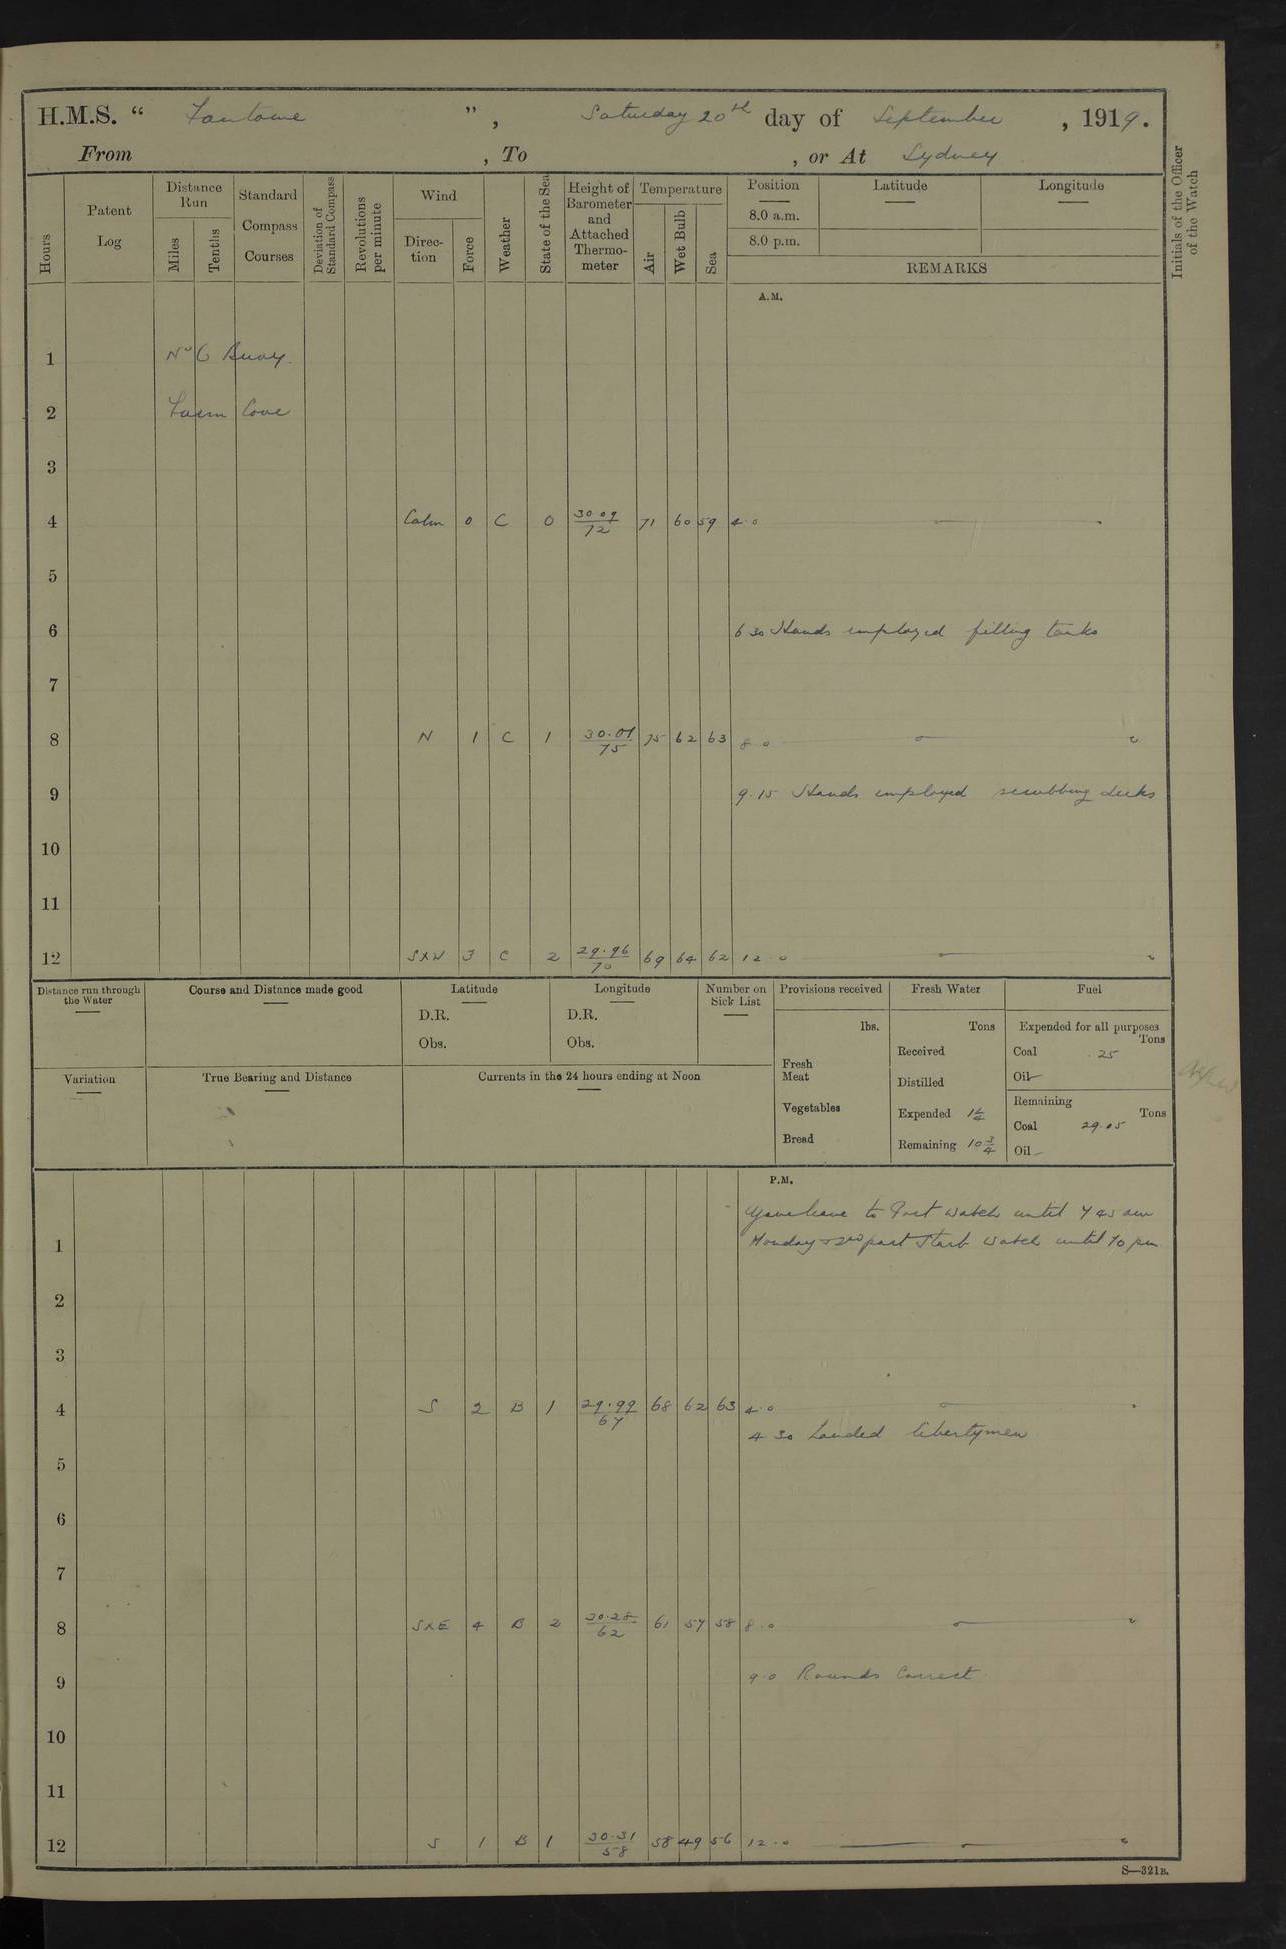 H.M.S. " Fantome ", Saturday 20th day of September, 1919.
From , To , or At Sydney
Hours
Patent Log
Distance Run
Miles
Tenths
Standard Compass Courses
Deviation of Standard Compass
Revolutions per minute
Wind
Direction
Force
Weather
State of the Sea
Height of Barometer and Attached Thermometer
Temperature
Air
Wet Bulb
Sea
Position
8.0 a.m.
8.0 p.m.
Latitude
Longitude
REMARKS
Initials of the Officer of the Watch
A.M.
1 No 6 Buoy.
2 Farm Cove
3
4 Calm 0 C 0 30.09/72 71 60 59 4.0
5
6 6 30 Hands employed filling tanks
7
8 N 1 C 1 30.01/75 75 62 63 8 0
9 9.15 Hands employed scrubbing decks
10
11
12 SXW 3 C 2 29.96/70 69 64 62 12.0
Distance run through the Water
Course and Distance made good
Latitude
D.R.
Obs.
Longitude
D.R.
Obs.
Number on Sick List
Provisions received
lbs.
Fresh Meat
Vegetables
Bread
Fresh Water
Tons
Received
Distilled
Expended
Remaining 10 3/4
Fuel
Expended for all purposes
Tons
Coal .25
Oil
Remaining
Tons
Coal 29.05
Oil
Variation
True Bearing and Distance
Currents in the 24 hours ending at Noon
P.M.
Gave leave to Port Watch until 7 45 am
1 Monday & 2nd part Starb Watch until 10 pm
2
3
4 S 2 B 1 29.99/67 68 62 63 4.0
4 30 Landed libertymen
5
6
7
8 SXE 4 B 2 30.28/62 61 57 58 8.0
9 9.0 Rounds Correct
10
11
12 S 1 B 1 30.31/58 58 49 56 12.0
S—321B.